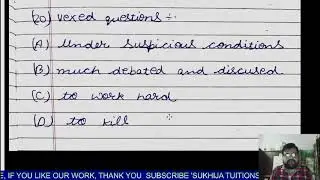 (20) vexed questions :-
(A) Under suspicious conditions
(B) much debated and discused
(C) to work hard
(D) to kill
E, IF YOU LIKE OUR WORK, THANK YOU SUBSCRIBE 'SUKHIJA TUITIONS